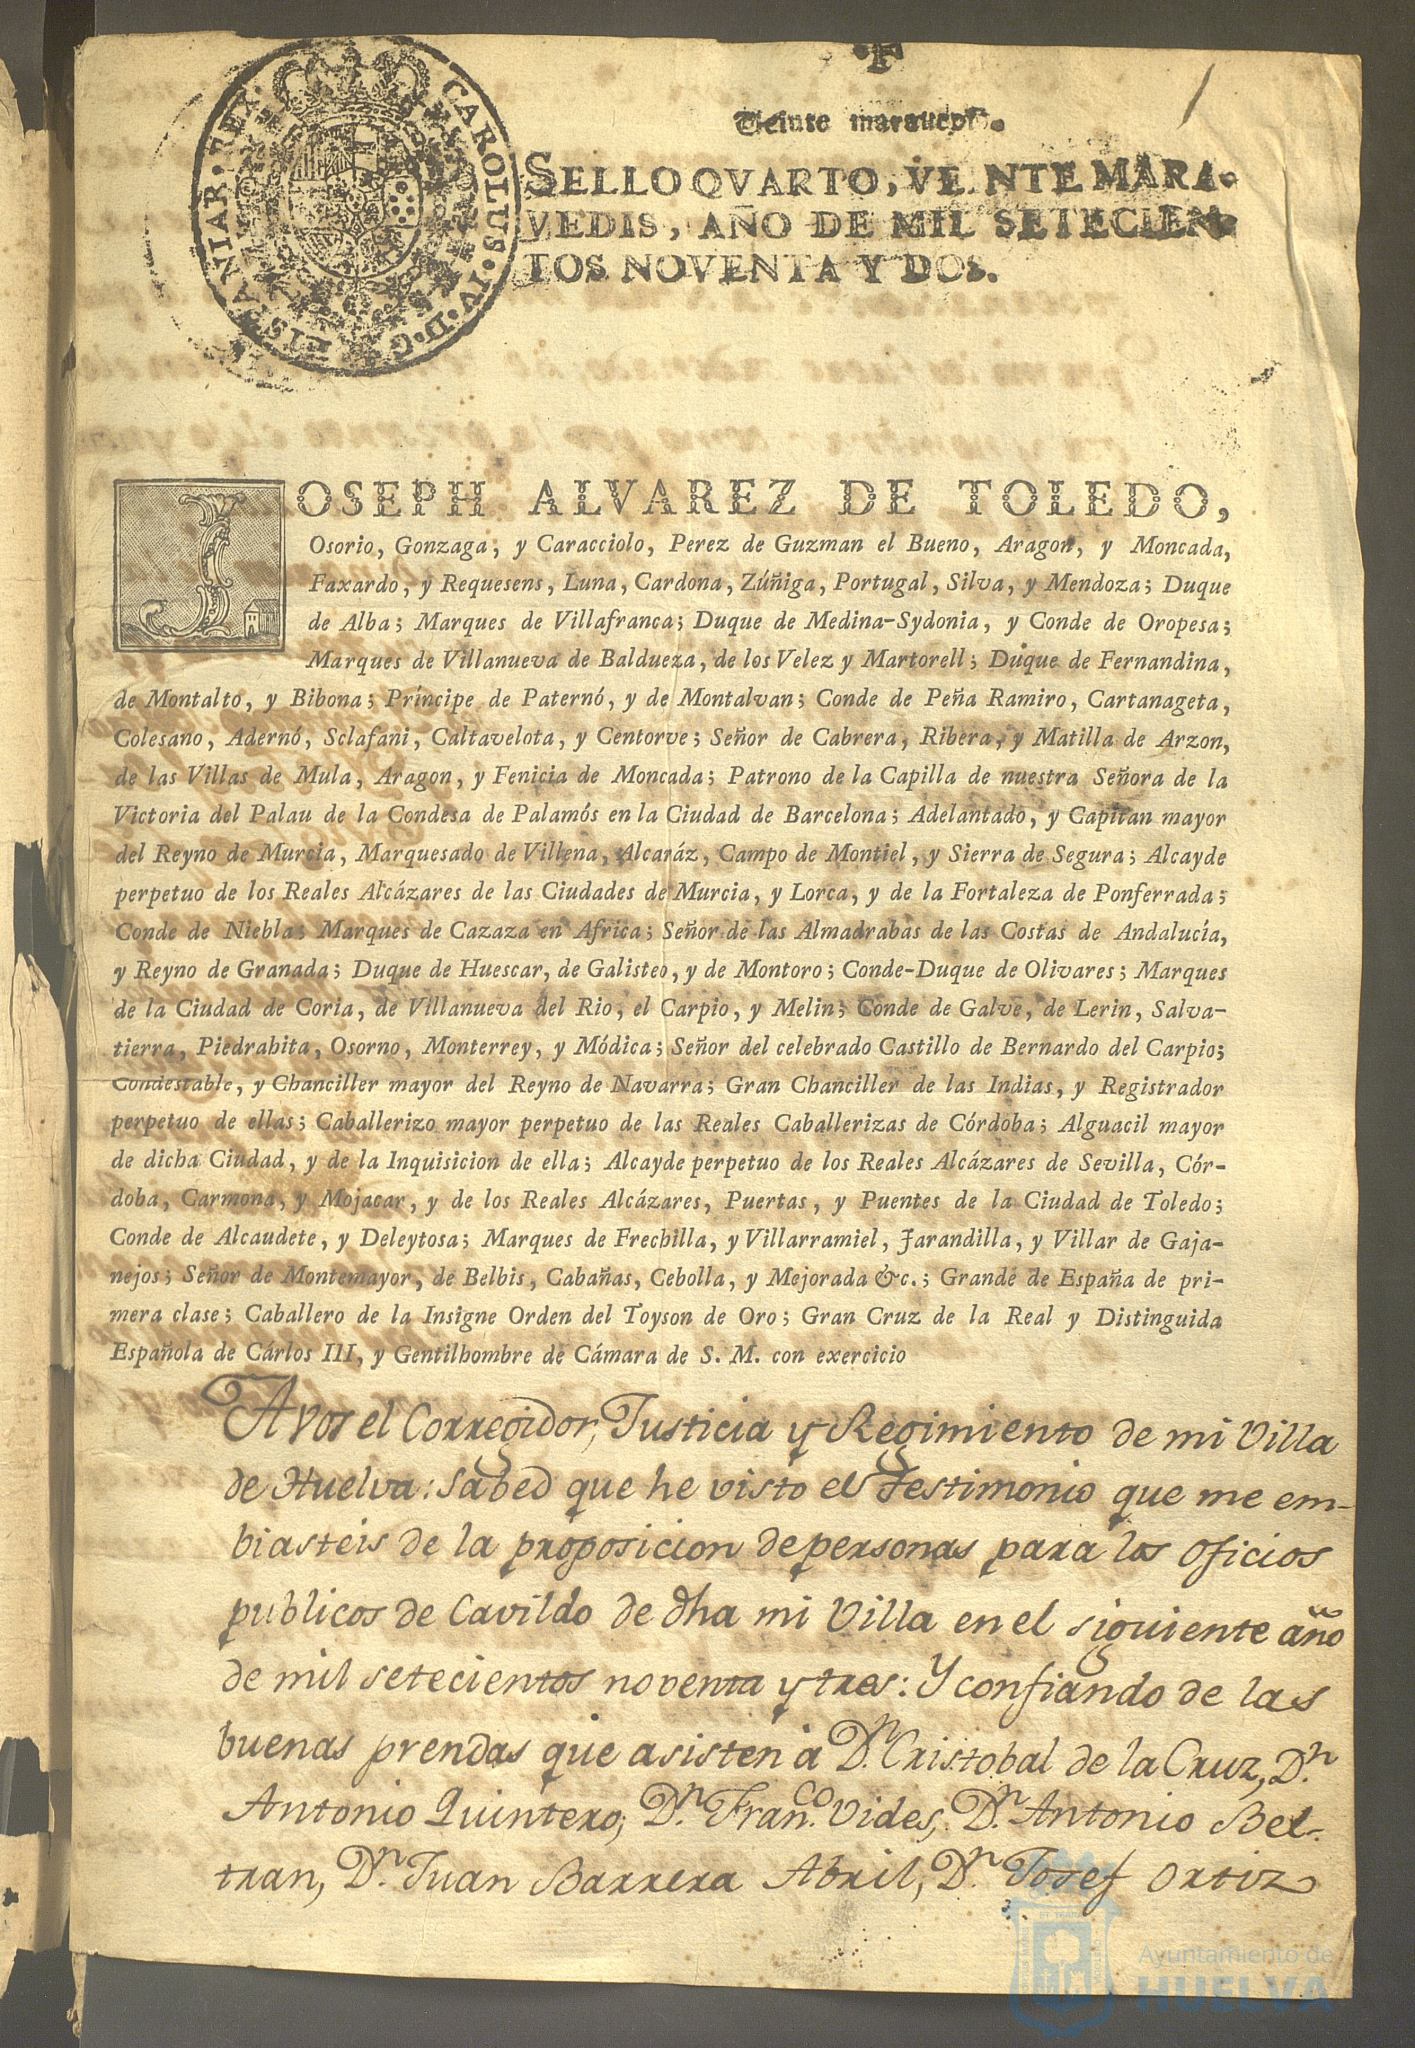 CAROLUS·IV·D·G·HISPANIAR·REX·
Veinte maravedis.
SELLO QVARTO, VEINTE MARA-
VEDIS, AÑO DE MIL SETECIEN-
TOS NOVENTA Y DOS.
JOSEPH ALVAREZ DE TOLEDO,
Osorio, Gonzaga, y Caracciolo, Perez de Guzman el Bueno, Aragon, y Moncada,
Faxardo, y Requesens, Luna, Cardona, Zúñiga, Portugal, Silva, y Mendoza; Duque
de Alba; Marques de Villafranca; Duque de Medina-Sydonia, y Conde de Oropesa;
Marques de Villanueva de Baldueza, de los Velez y Martorell; Duque de Fernandina,
de Montalto, y Bibona; Príncipe de Paternó, y de Montalvan; Conde de Peña Ramiro, Cartanageta,
Colesano, Adernó, Sclafani, Caltavelota, y Centorve; Señor de Cabrera, Ribera, y Matilla de Arzon,
de las Villas de Mula, Aragon, y Fenicia de Moncada; Patrono de la Capilla de nuestra Señora de la
Victoria del Palau de la Condesa de Palamós en la Ciudad de Barcelona; Adelantado, y Capitan mayor
del Reyno de Murcia, Marquesado de Villena, Alcaráz, Campo de Montiel, y Sierra de Segura; Alcayde
perpetuo de los Reales Alcázares de las Ciudades de Murcia, y Lorca, y de la Fortaleza de Ponferrada;
Conde de Niebla; Marques de Cazaza en Africa; Señor de las Almadrabas de las Costas de Andalucía,
y Reyno de Granada; Duque de Huescar, de Galisteo, y de Montoro; Conde-Duque de Olivares; Marques
de la Ciudad de Coria, de Villanueva del Rio, el Carpio, y Melin; Conde de Galve, de Lerin, Salva-
tierra, Piedrahita, Osorno, Monterrey, y Módica; Señor del celebrado Castillo de Bernardo del Carpio;
Condestable, y Chanciller mayor del Reyno de Navarra; Gran Chanciller de las Indias, y Registrador
perpetuo de ellas; Caballerizo mayor perpetuo de las Reales Caballerizas de Córdoba; Alguacil mayor
de dicha Ciudad, y de la Inquisicion de ella; Alcayde perpetuo de los Reales Alcázares de Sevilla, Cór-
doba, Carmona, y Mojacar, y de los Reales Alcázares, Puertas, y Puentes de la Ciudad de Toledo;
Conde de Alcaudete, y Deleytosa; Marques de Frechilla, y Villarramiel, Jarandilla, y Villar de Gaja-
nejos; Señor de Montemayor, de Belbis, Cabañas, Cebolla, y Mejorada &c.; Grande de España de pri-
mera clase; Caballero de la Insigne Orden del Toyson de Oro; Gran Cruz de la Real y Distinguida
Española de Cárlos III, y Gentilhombre de Cámara de S. M. con exercicio
A vos el Corregidor, Justicia y Regimiento de mi Villa
de Huelva: sabed que he visto el testimonio que me em-
biasteis de la proposicion de personas para los oficios
publicos de Cavildo de dha mi Villa en el siguiente año
de mil setecientos noventa y tres: Y confiando de las
buenas prendas que asisten à Dn. Cristobal de la Cruz, Dn.
Antonio Quintero, Dn. Franco. Vides, Dn. Antonio Bel-
tran, Dn. Juan Barrera Abril, Dn. Josef Ortiz
Ayuntamiento de
HUELVA